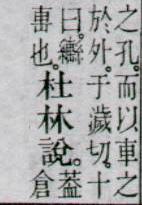 之孔。而以車之
於外。于濊切。十
曰。
軎也。
杜林說。
葢
倉